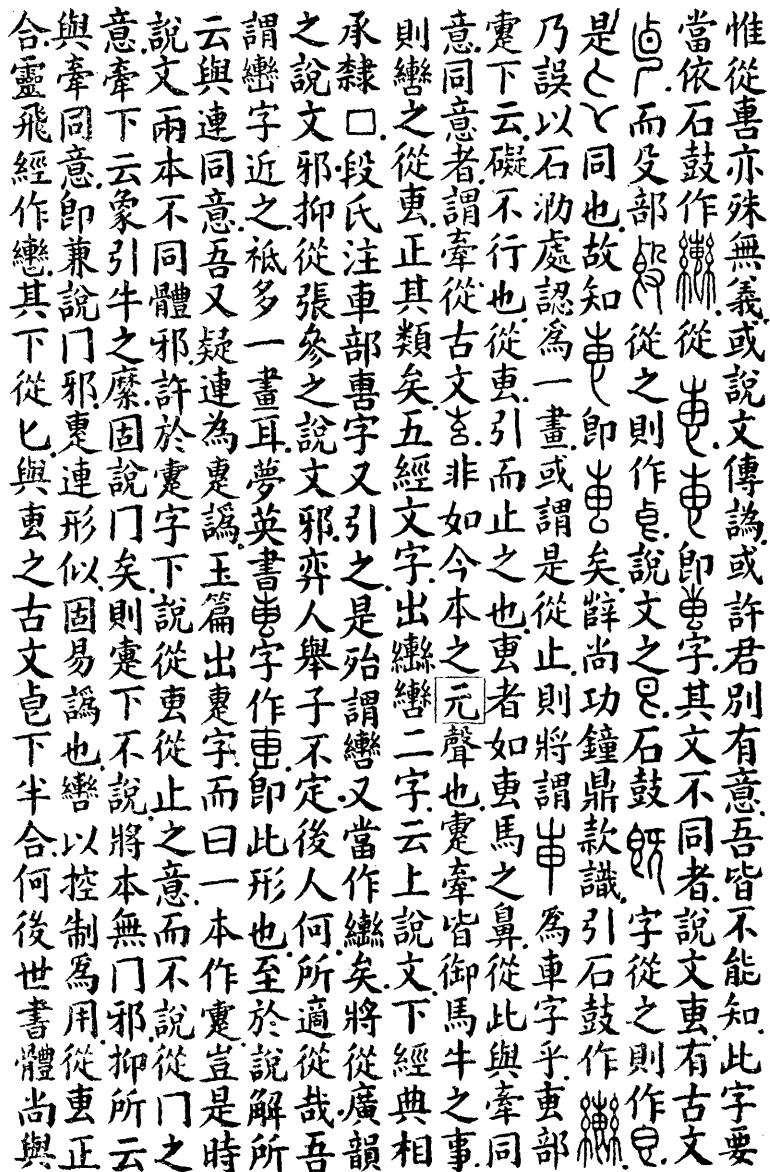 惟從叀亦殊無義或說文傳譌或許君別有意吾皆不能知此字要
當依石鼓作從即叀字其文不同者說文叀有古文
而殳部從之則作皀說文之皀石鼓字從之則作皀
是同也故知即矣薛尚功鐘鼎款識引石鼓作
乃誤以石泐處認爲一畫或謂是從止則將謂爲車字乎叀部
疐下云礙不行也從叀引而止之也叀者如叀馬之鼻從此與牽同
意同意者謂牽從古文玄非如今本之元聲也疐牽皆御馬牛之事
則轡之從叀正其類矣五經文字出轡二字云上說文下經典相
承隸□段氏注車部軎字又引之是殆謂轡又當作矣將從廣韻
之說文邪抑從張參之說文邪弈人舉子不定後人何所適從哉吾
謂轡字近之祇多一畫耳夢英書叀字作即此形也至於說解所
云與連同意吾又疑連為疐譌玉篇出疐字而曰一本作疐豈是時
說文兩本不同體邪許於疐字下說從叀從止之意而不說從冂之
意牽下云象引牛之縻固說冂矣則疐下不說將本無冂邪抑所云
與牽同意即兼說冂邪疐連形似固易譌也轡以控制爲用從叀正
合靈飛經作其下從匕與叀之古文皀下半合何後世書體尚與